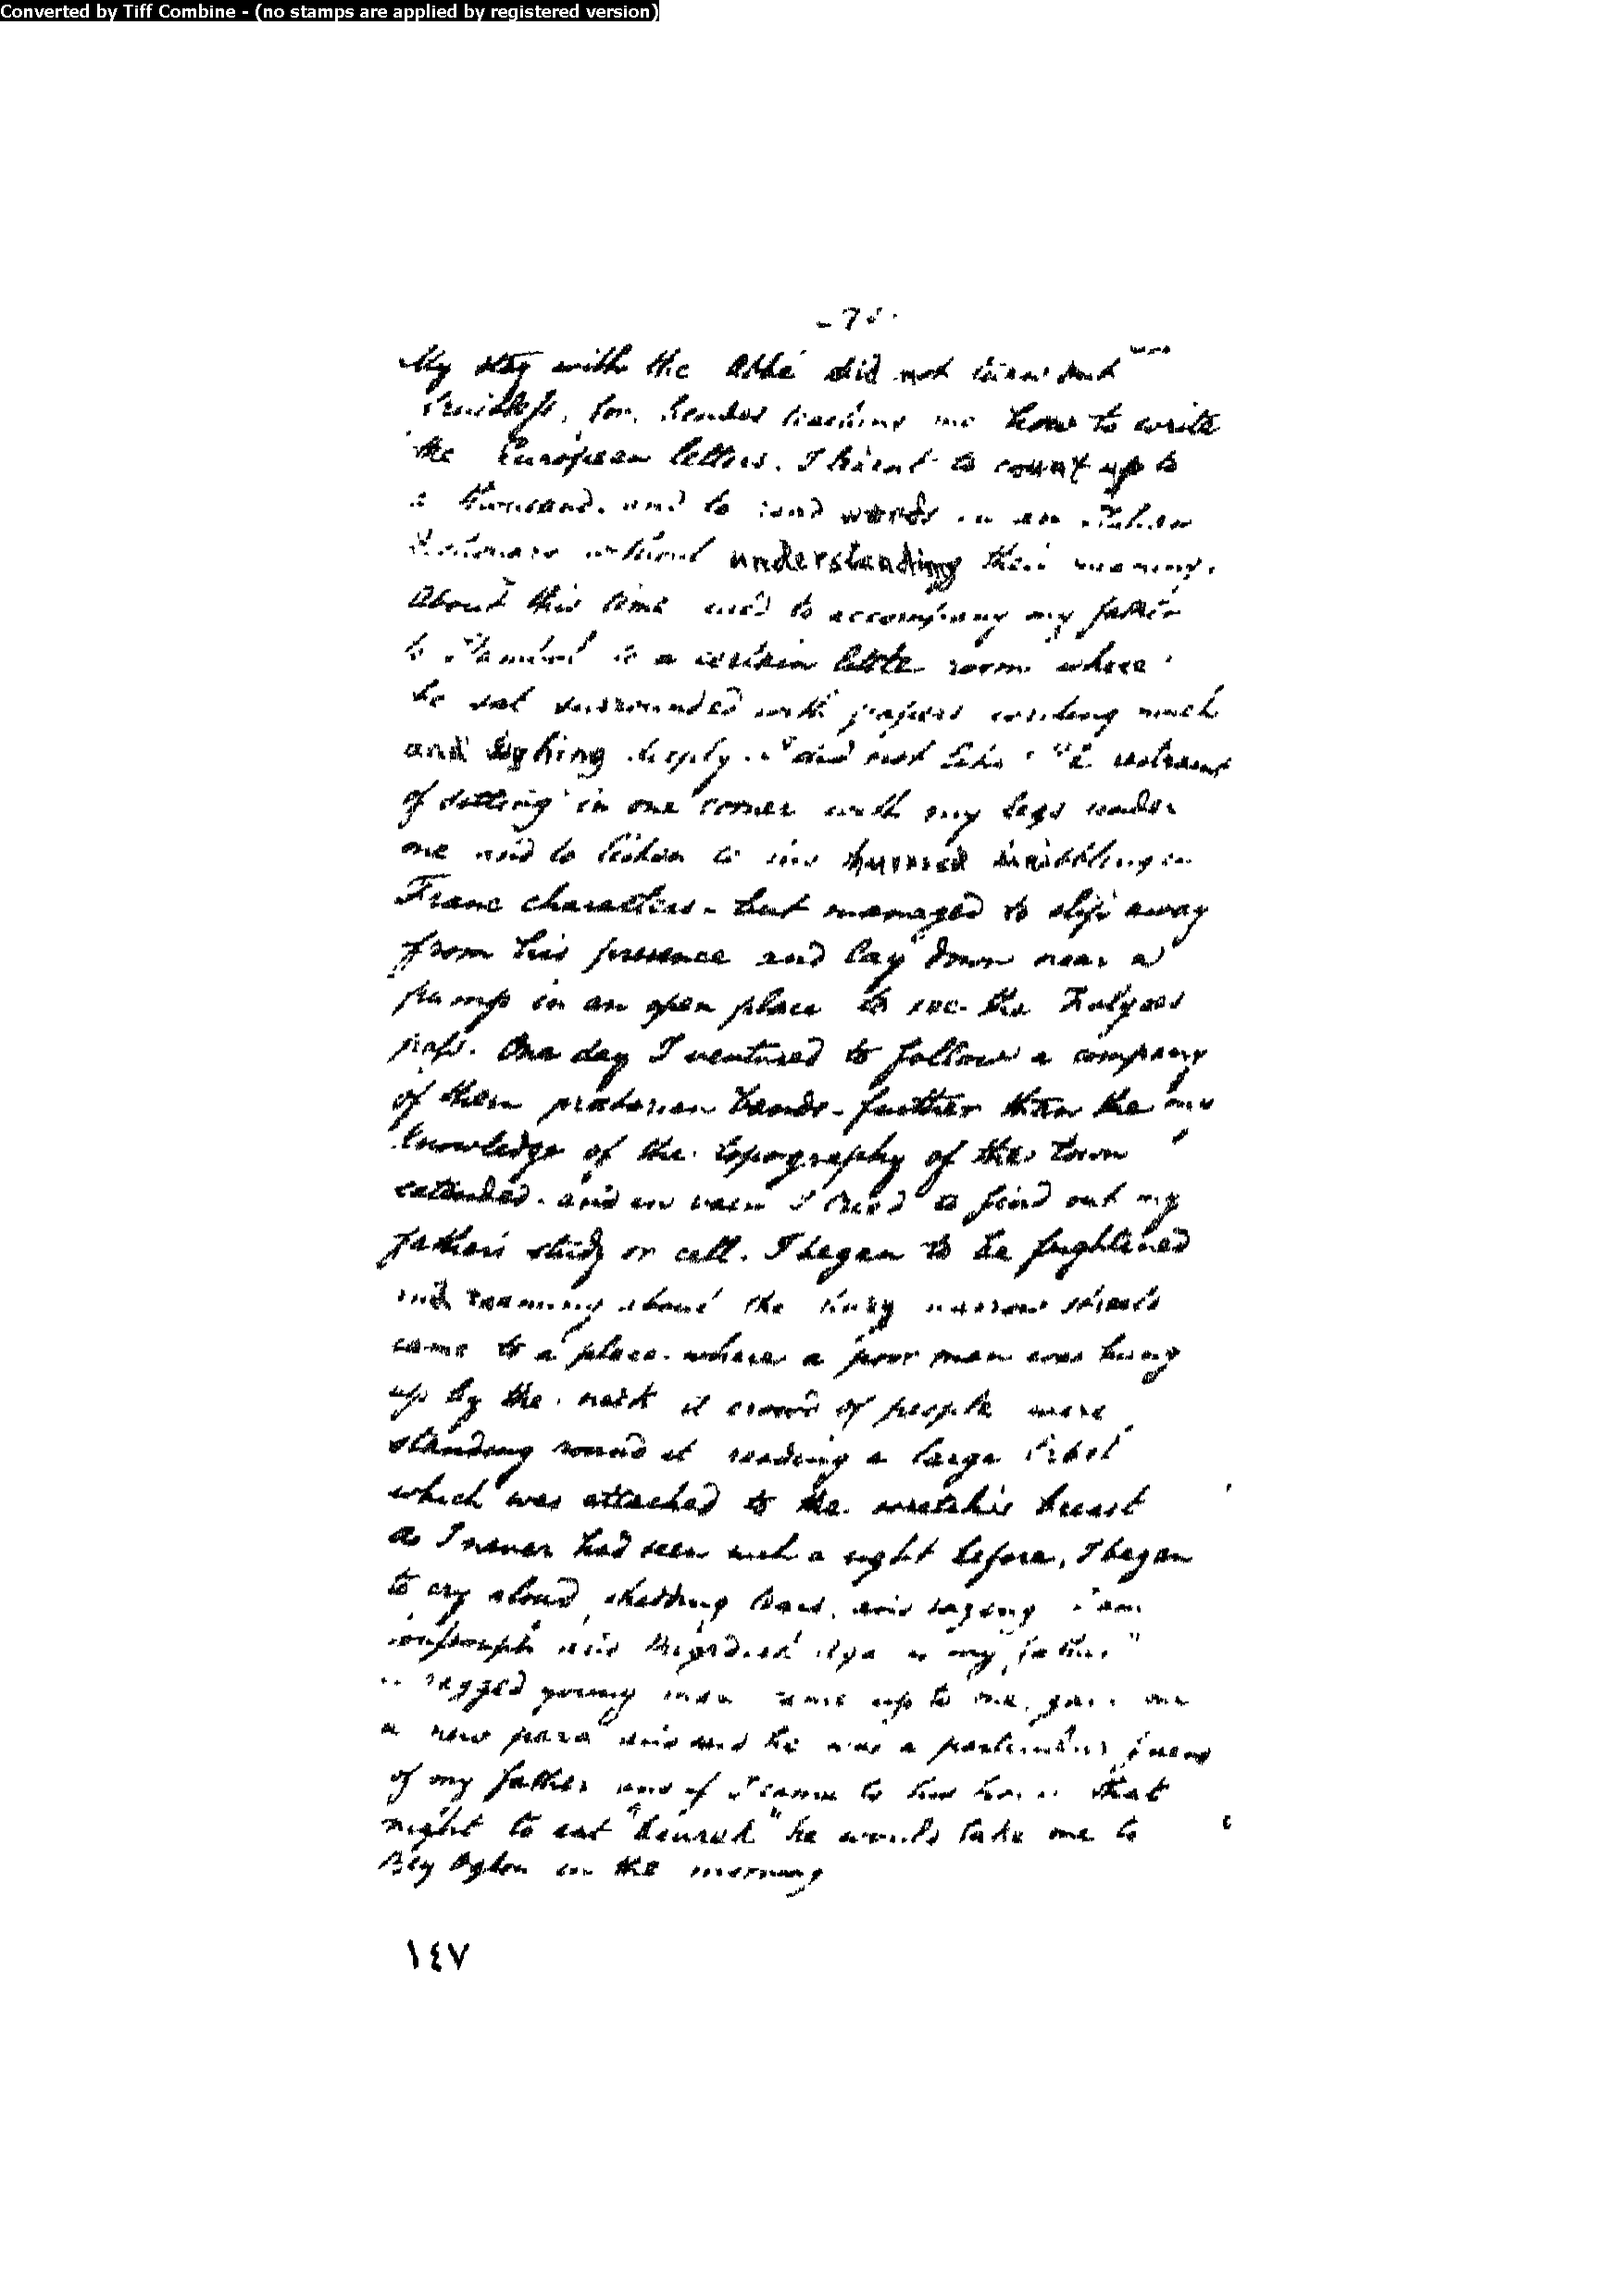 Converted by Tiff Combine - (no stamps are applied by registered version)
My stay with the Abbé did not turn out
fruitless, for, besides teaching me how to write
the European letters. I learnt to count up to
a thousand. and to read words in an Italian
understanding their meaning.
About this time used to accompany my father
to Stambul to a certain little room where
he sat surrounded with papers writing much
and sighing deeply. I did not like the restraint
of sitting in one corner with my legs under
me and to listen to his hurried scribbling in
Franc characters - but managed to slip away
from his presence and lay down near a
pump in an open place to see the
pass. One day I ventured to follow a company
of them pretorian bands - further than the
knowledge of the topography of the town
extended. and in vain I tried to find out my
father's study or cell. I began to be frightened
and roaming about the busy narrow streets
came to a place. where a poor man was hung
up by the neck a crowd of people were
standing round it reading a large label
which was attached to the wretch's breast
as I never had seen such a sight before, I began
to cry aloud, shedding tears, and saying I am
and is my father"
a ragged young man came up to me, gave me
a new para and said he was a particular friend
of my father and if I came to his house that
night to eat he would take me to
Bey Oglou in the morning
١٤٧